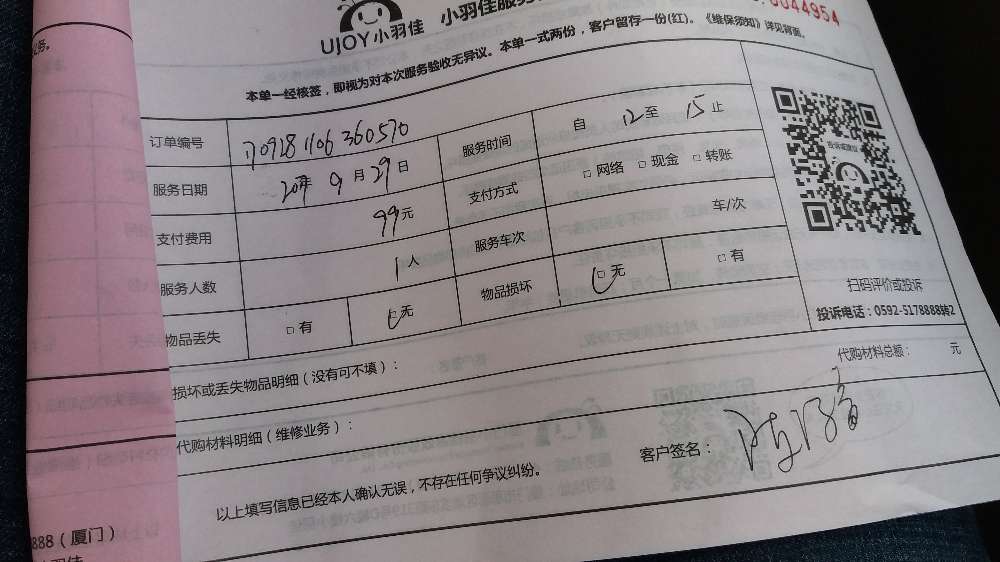 UJOY小羽佳 小羽佳服务
0044954
本单一经核签，即视为对本次服务验收无异议。本单一式两份，客户留存一份(红)。《维保须知》详见背面。
订单编号 170928 1106 360570 服务时间 自 12 至 15 止
服务日期 2017年 9 月 29 日 支付方式 □ 网络 □ 现金 □ 转账
支付费用 99 元 服务车次 车/次
服务人数 1 人 物品损坏 □ 无 □ 有
物品丢失 □ 有 □ 无
投诉或建议
扫码评价或投诉
投诉电话：0592-5178888转2
损坏或丢失物品明细（没有可不填）：
代购材料总额： 元
代购材料明细（维修业务）：
客户签名：
以上填写信息已经本人确认无误，不存在任何争议纠纷。
888（厦门）
小羽佳